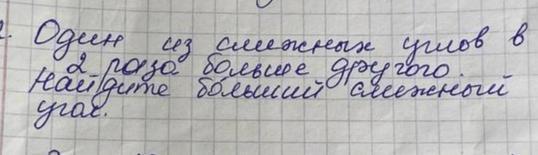 Один из смежных углов в
2 раза больше другого.
Найдите больший смежный
угол.